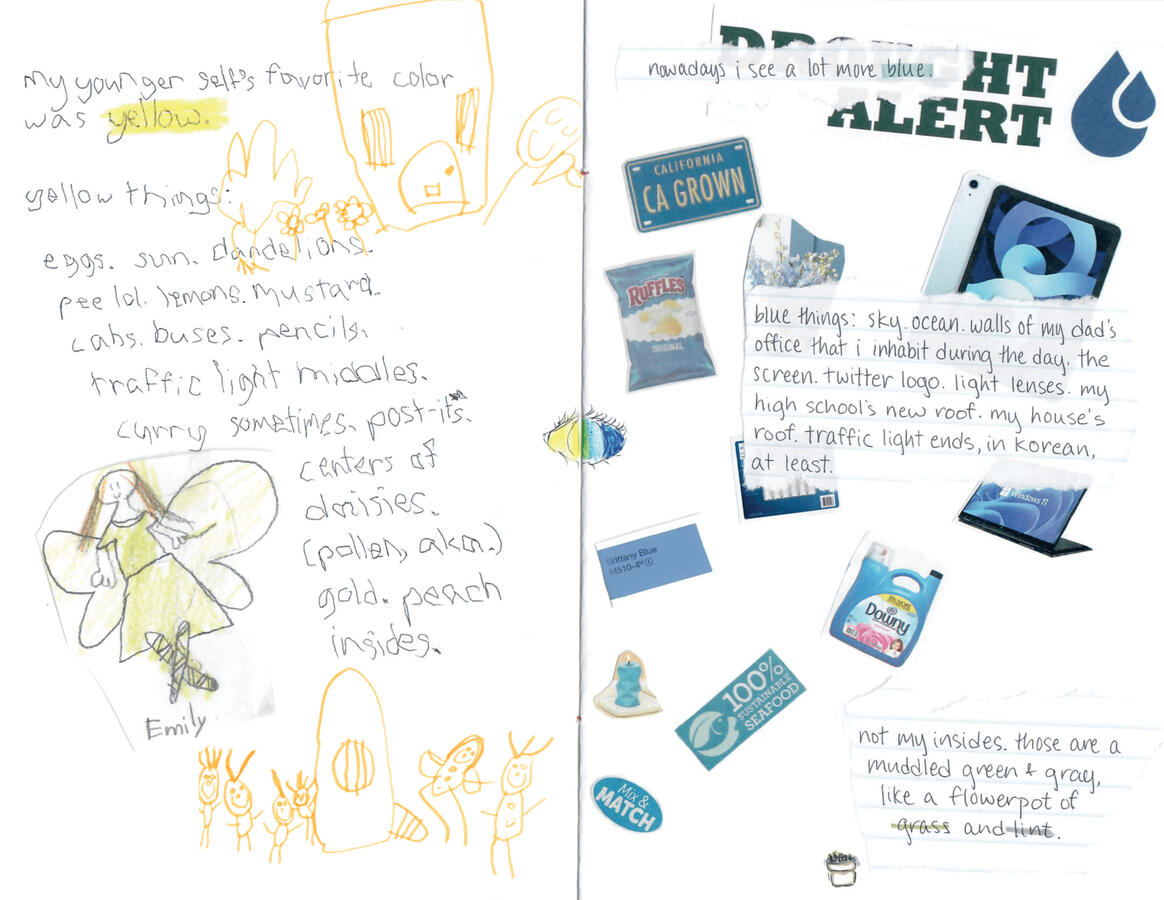 my younger self's favorite color
was yellow.
yellow things:
eggs. sun. dandelions.
pee lol. lemons. mustard.
cabs. buses. pencils.
traffic light middles.
curry sometimes. post-its.
centers of
daisies.
(pollen, aka.)
gold. peach
insides.
Emily
HT
ALERT
nowadays i see a lot more blue.
CALIFORNIA
CA GROWN
RUFFLES
ORIGINAL
blue things: sky. ocean. walls of my dad's
office that i inhabit during the day. the
screen. twitter logo. light lenses. my
high school's new roof. my house's
roof. traffic light ends, in korean,
at least.
Windows 11
Brittany Blue
M510-4
Downy
100%
SUSTAINABLE
SEAFOOD
Mix &
MATCH
not my insides. those are a
muddled green & gray,
like a flowerpot of
grass and lint.